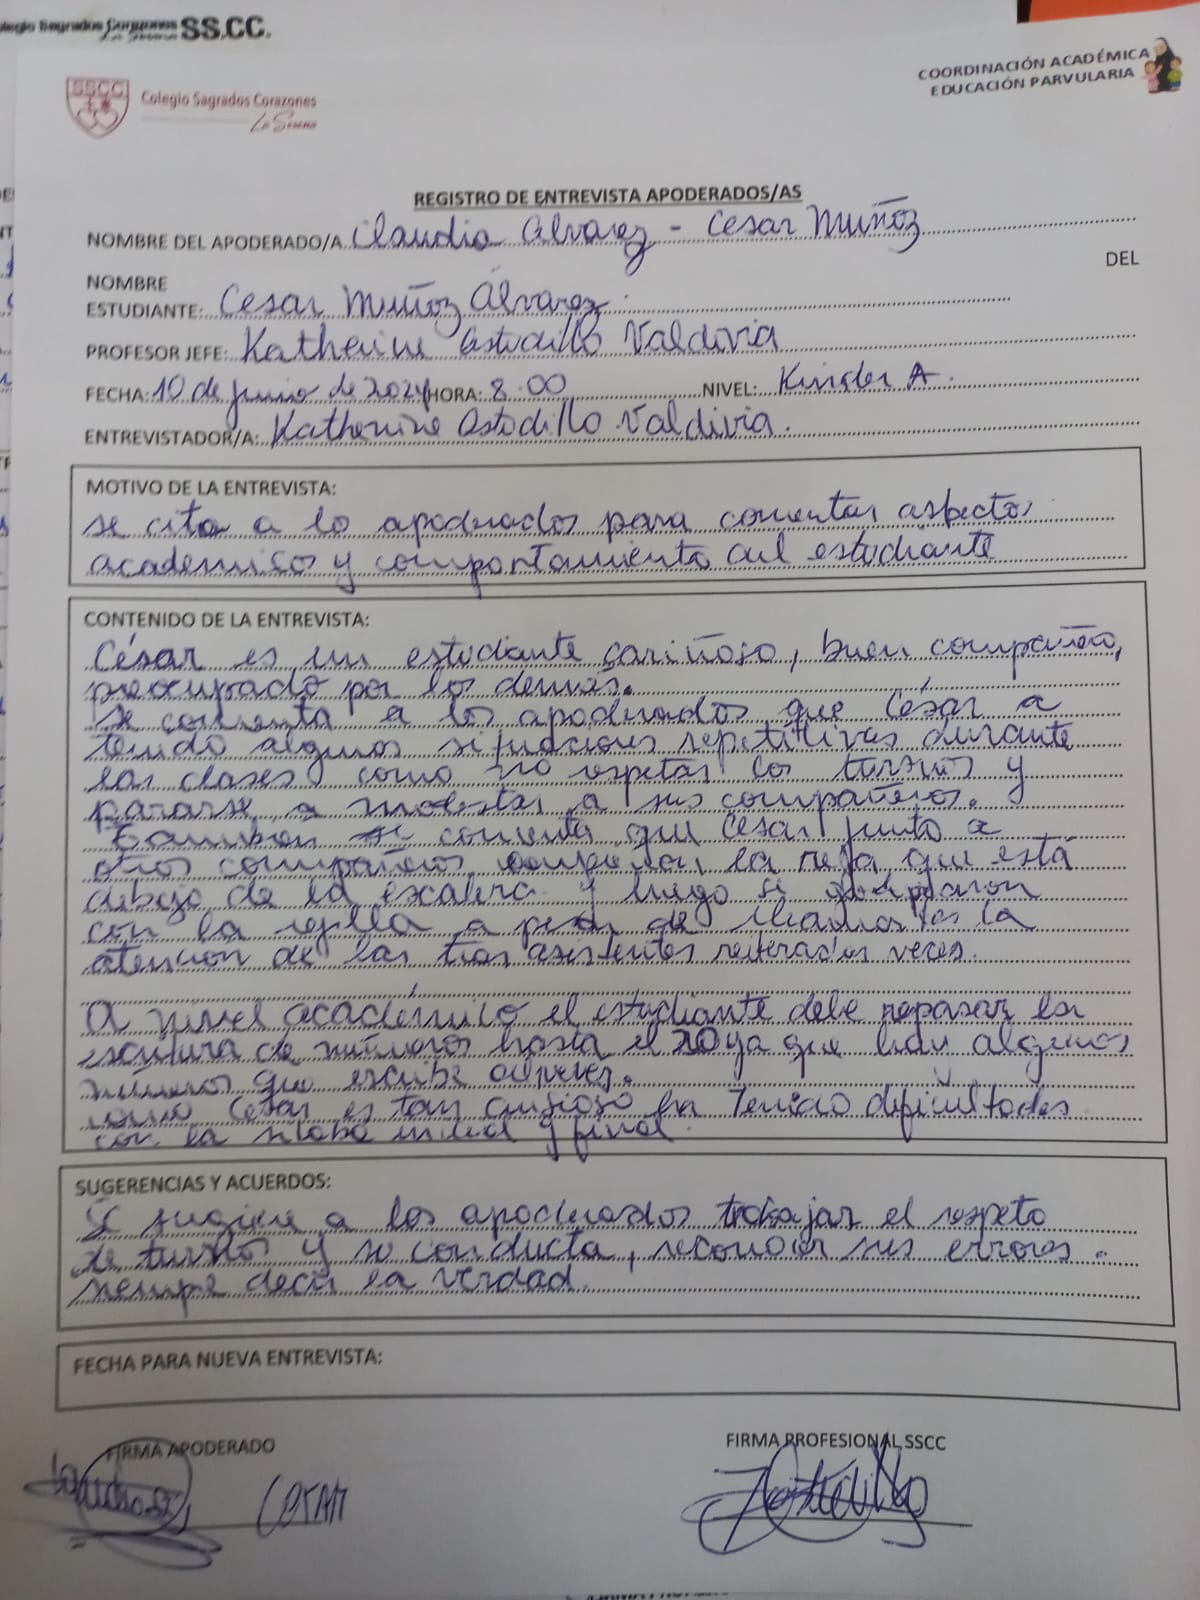 Colegio Sagrados Corazones SS.CC.
La Serena
COORDINACIÓN ACADÉMICA
EDUCACIÓN PARVULARIA
SSCC
Colegio Sagrados Corazones
La Serena
REGISTRO DE ENTREVISTA APODERADOS/AS
NOMBRE DEL APODERADO/A Claudia Alvarez - Cesar Muñoz
DEL
NOMBRE
ESTUDIANTE: Cesar Muñoz Álvarez
PROFESOR JEFE: Katherine Astudillo Valdivia
FECHA: 10 de junio de 2024 HORA: 8:00 NIVEL: Kinder A.
ENTREVISTADOR/A: Katherine Astudillo Valdivia.
MOTIVO DE LA ENTREVISTA:
se cita a lo apoderados para comentar aspectos
academicos y comportamiento del estudiante
CONTENIDO DE LA ENTREVISTA:
César es un estudiante cariñoso, buen compañero,
preocupado por los demás.
se comenta a los apoderados que César a
tenido algunos situaciones repetitivas durante
las clases como no respetar los turnos y
pararse a molestar a sus compañeros.
También se comenta que César junto a
otros compañeros la reja que está
debajo de la escalera y luego se
con la rejilla a pesar de llamarles la
atencion de las tias asistentes reiteradas veces.
A nivel académico el estudiante debe repasar la
escritura de números hasta el 20 ya que hay algunos
números que escribe al revez.
como César es tan ansioso ha tenido dificultades
con la silaba inicial y final.
SUGERENCIAS Y ACUERDOS:
Se sugiere a los apoderados trabajar el respeto
de turnos y su conducta, reconocer sus errores.
siempre decir la verdad.
FECHA PARA NUEVA ENTREVISTA:
FIRMA APODERADO
FIRMA PROFESIONAL SSCC
CESAR